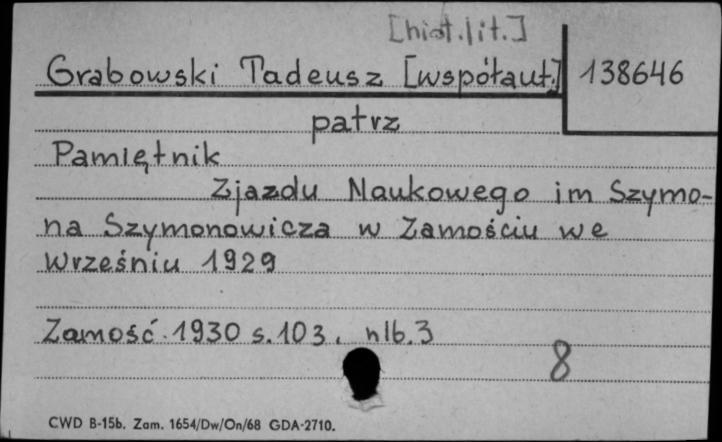 [hist.lit.]
Grabowski Tadeusz [współaut.] 138646
patrz
Pamiętnik
Zjazdu Naukowego im Szymo-
na Szymonowicza w Zamościu we
Wrześniu 1929
Zamość. 1930 s. 103. nlb. 3
8
CWD B-15b. Zam. 1654/Dw/On/68 GDA-2710.